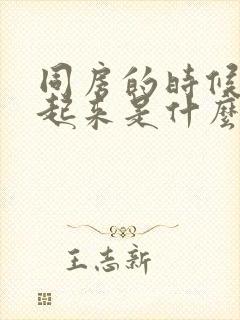 同房的時候
起来是什麼
王志新